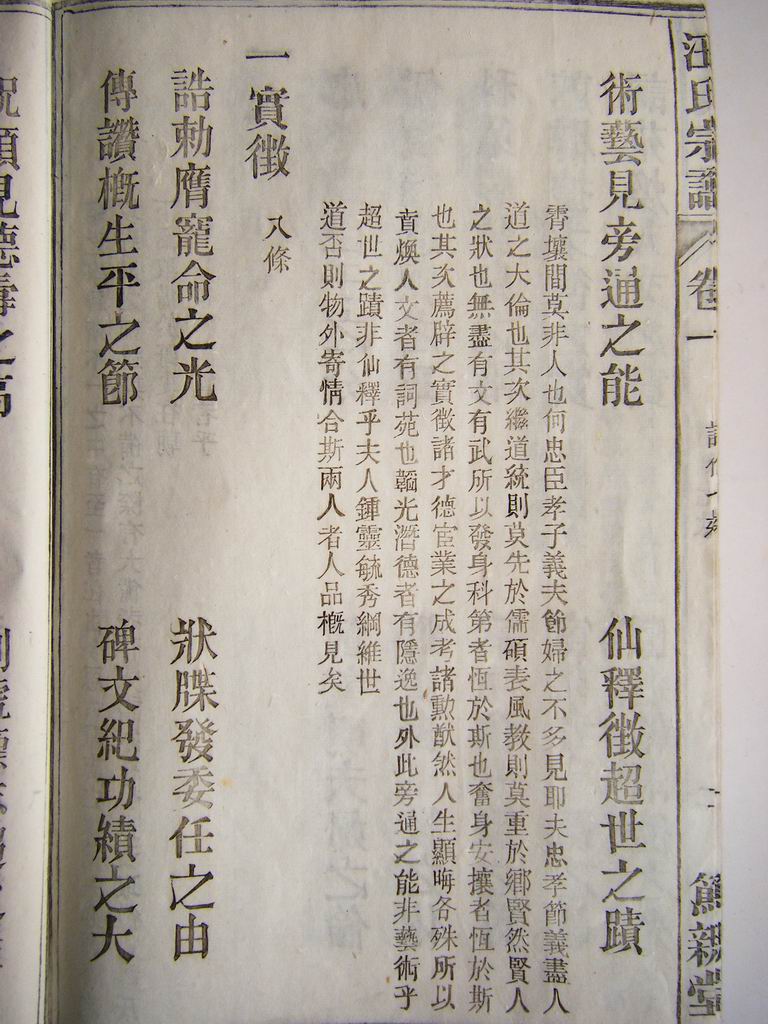 汪氏宗譜
卷一
篤親堂
術藝見旁通之能 仙釋徵超世之蹟
霄壤間莫非人也何忠臣孝子義夫節婦之不多見耶夫忠孝節義盡人
道之大倫也其次繼道統則莫先於儒碩表風教則莫重於鄉賢然賢人
之狀也無盡有文有武所以發身科第者恆於斯也奮身安攘者恆於斯
也其次薦辟之實徵諸才德宦業之成考諸勳猷然人生顯晦各殊所以
賁煥人文者有詞苑也韜光潛德者有隱逸也外此旁通之能非藝術乎
超世之蹟非仙釋乎夫人鍾靈毓秀綱維世
道否則物外寄情合斯兩人者人品概見矣
一實徵 八條
誥勅膺寵命之光 狀牒發委任之由
傳讚概生平之節 碑文紀功績之大